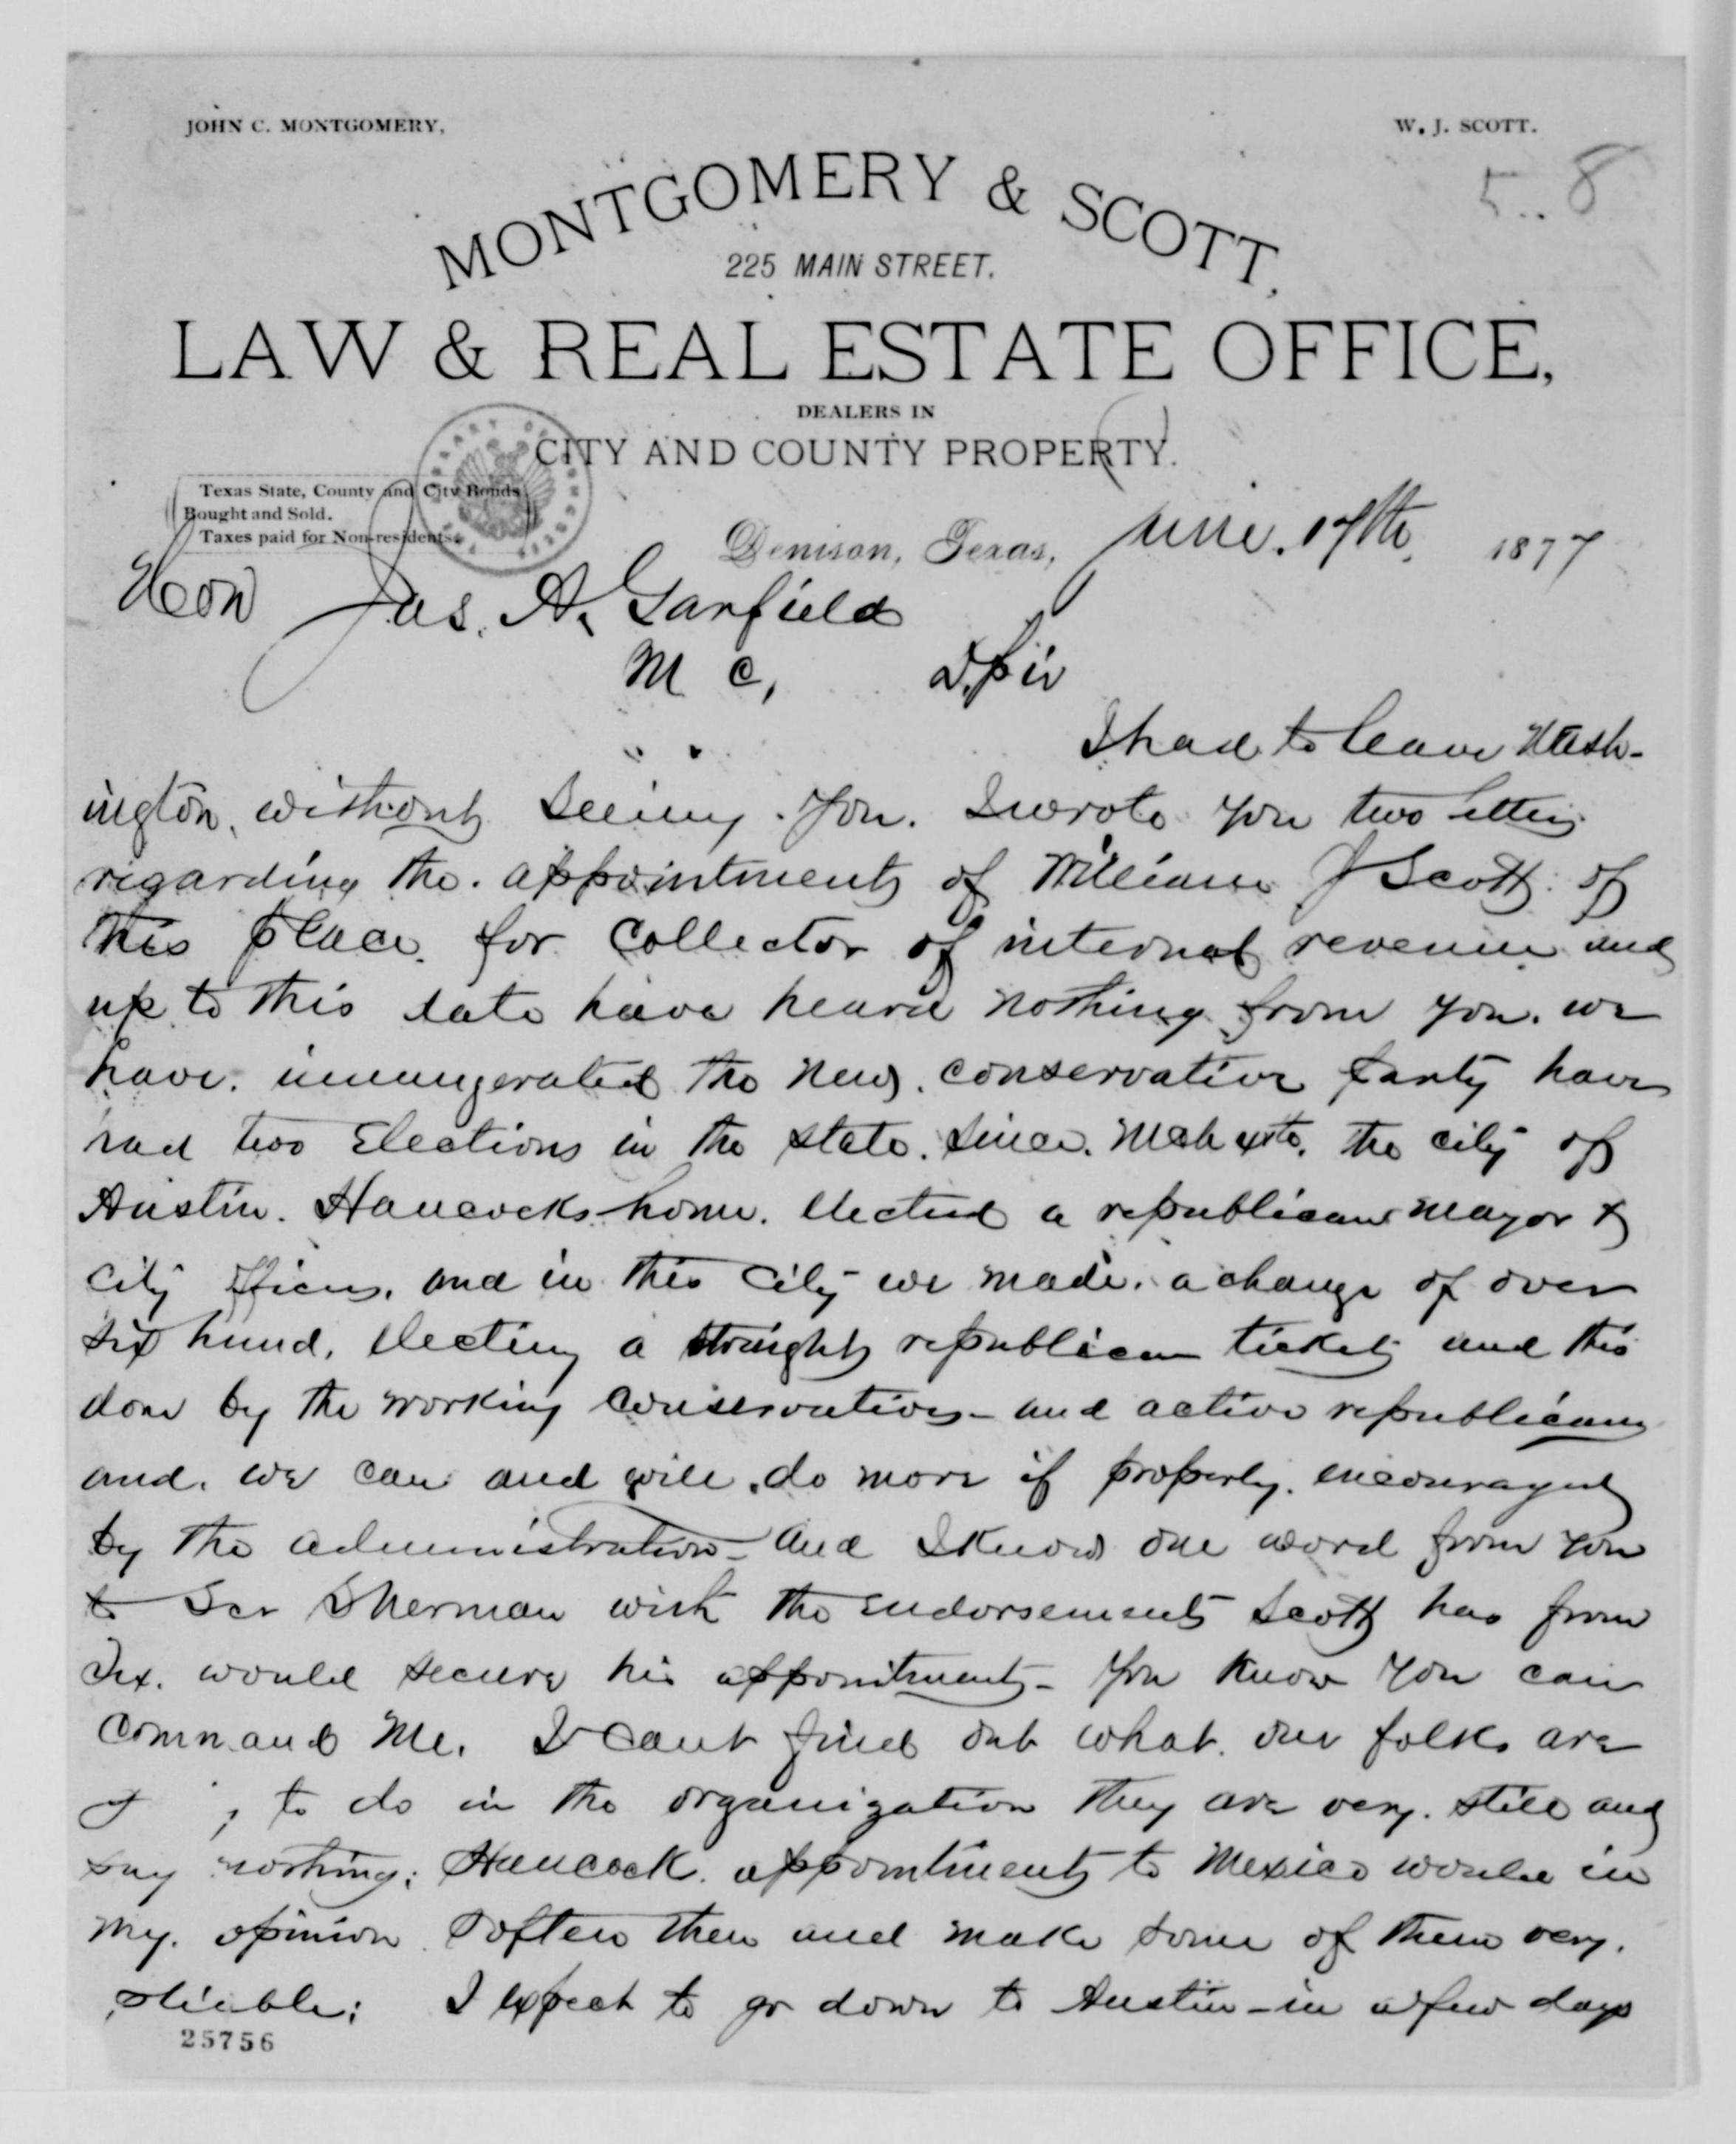 JOHN C. MONTGOMERY,
W. J. SCOTT.
5..8
MONTGOMERY & SCOTT,
225 MAIN STREET.
LAW & REAL ESTATE OFFICE,
DEALERS IN
CITY AND COUNTY PROPERTY.
Texas State, County and City Bonds
Bought and Sold.
Taxes paid for Non-residents.
Denison, Texas, June. 17th. 1877
Hon Jas. A. Garfield
M C, D. Sir
I had to leave Wash-
ington, without seeing you. I wrote you two letters
regarding the appointment of William J Scott of
this place. for Collector of internal revenue and
up to this date have heard nothing from you. we
have. innaugerated the new. conservative party have
had two Elections in the state. since. Mch 4th. the city of
Austin. Hancocks home. elected a republican mayor &
city officers. and in this City we made. a change of over
six hund. electing a straight republican ticket and this
done by the working conservatives - and active republicans
and. we can and will do more if properly. encouraged
by the administration - and I know one word from you
to Sec Sherman with the endorsements Scott has from
Tex. would secure his appointment - You know you can
command me. I cant find out what our folks are
to do in the organization they are very. still and
say nothing; Hancock. appointment to Mexico would in
my. opinion soften them and make some of them very.
pliable; I expect to go down to Austin - in a few days
25756